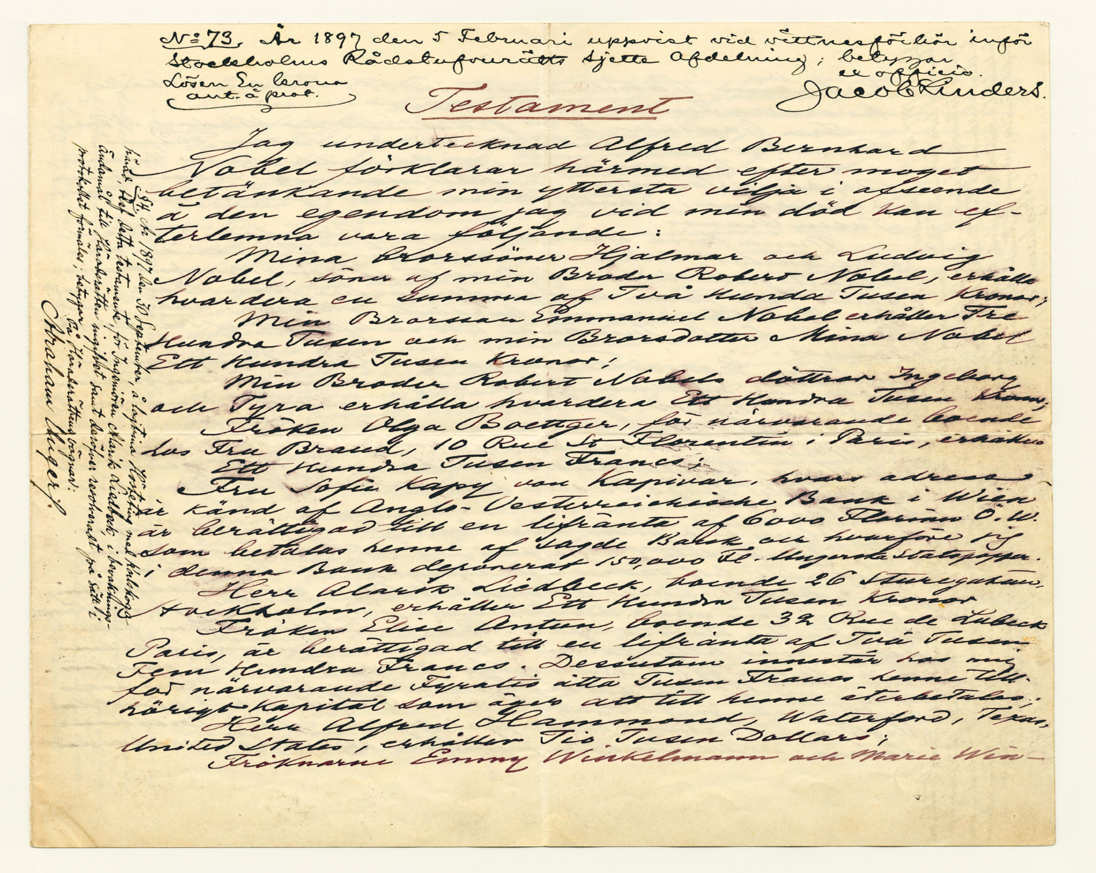 No 73. År 1897 den 5 Februari uppvist vid vittnesförhör inför
Stockholms Rådstufvurätts sjette Afdelning; betygar
Lösen En krona
ex officio.
ant. å prot.
Jacob Linders.
Testament
Jag undertecknad Alfred Bernhard
Nobel förklarar härmed efter moget
betänkande min yttersta vilja i afseende
å den egendom jag vid min död kan ef-
terlemna vara följande:
Mina Brorssöner Hjalmar och Ludvig
Nobel, söner af min Broder Robert Nobel, erhålla
hvardera en summa af Två Hundra Tusen Kronor;
Min Brorsson Emmanuel Nobel erhåller Tre
Hundra Tusen och min Brorsdotter Mina Nobel
Ett Hundra Tusen Kronor;
Min Broder Robert Nobels döttrar Ingeborg
och Tyra erhålla hvardera Ett Hundra Tusen Kronor;
Fröken Olga Boettger, för närvarande boende
hos Fru Brand, 10 Rue St Florentin i Paris, erhåller
Ett Hundra Tusen Francs;
Fru Sofie Kapy von Kapivar, hvars adress
är känd af Anglo-Oesterreichische Bank i Wien
är berättigad till en lifränta af 6000 Florins Ö.W.
som betalas henne af sagde Bank och hvarföre jag
i denna Bank deponerat 150,000 Fl. i Ungerska Statspapper.
Herr Alarik Liedbeck, boende 26 Sturegatan,
Stockholm, erhåller Ett Hundra Tusen Kronor
Fröken Elise Antun, boende 32 Rue de Lubeck
Paris, är berättigad till en lifränta af Två Tusen
Fem Hundra Francs. Dessutom innestår hos mig
för närvarande Fyratio åtta Tusen Francs henne till-
hörigt Kapital som äger att till henne återbetalas;
Herr Alfred Hammond, Waterford, Texas,
United States, erhåller Tio Tusen Dollars;
Fröknarne Emmy Winkelmann och Marie Win-
År 1897 den 30 September, å lagtima Hösteting med Karlskoga
detta testamente, för Ingeniören Alarik Liedbeck, i bevaknings-
ändamål till Häradsrätten ingifvet samt deröfver resolveradt på sätt
protokollet förmäler; betygar På Häradsrättens vägnar:
Abraham Unger